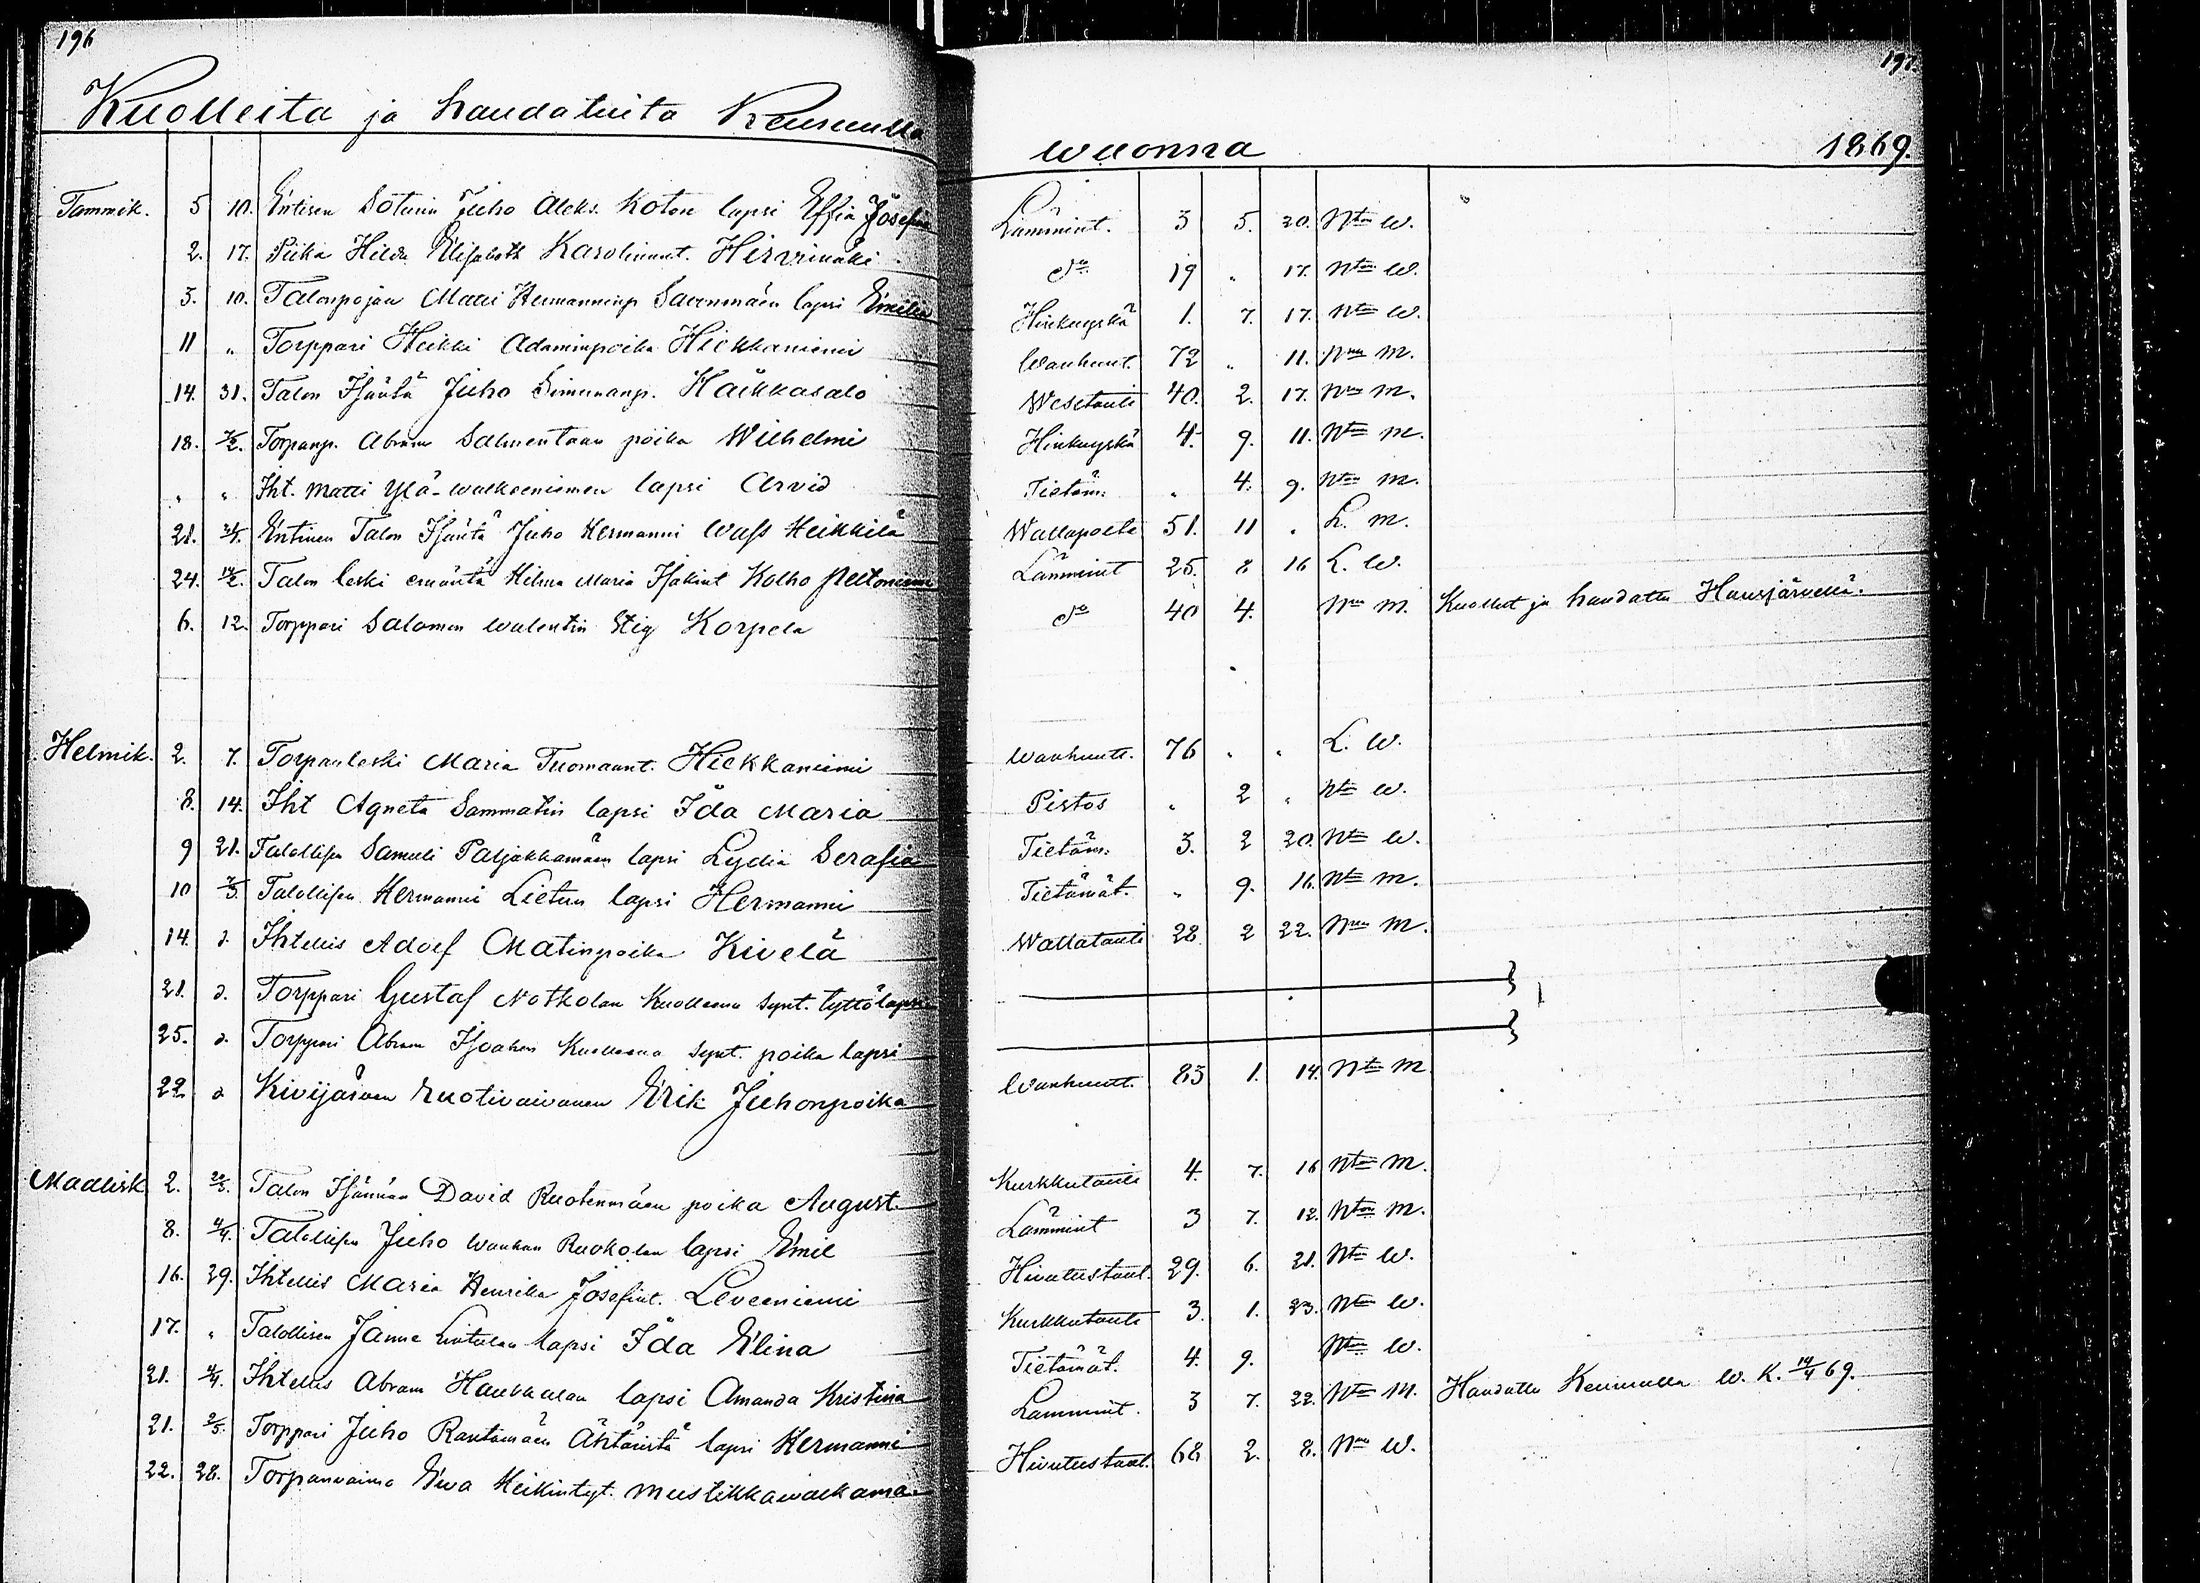 196
Kuolleita ja haudatuita Keuruulla
Tammik. 5 10. Entisen Soturin Juho Aleks. Koton lapsi Effia Josefina
2. 17. Piika Hilda Elisabeth Karoliinant. Hirvimäki
3. 10. Talonpojan Matti Hermanninp Saarnmäen lapsi Emilia
11 " Torppari Heikki Adaminpoika Hiekkaniemi
14. 31. Talon Isäntä Juho Simunanp. Haikkasalo
18. 7/2. Torpanp. Abram Salmentaan poika Wilhelmi
" " Iht. Matti Ylä-walkeeniemen lapsi Arvid
21. Entinen Talon Isäntä Juho Hermanni Wass Heikkilä
24. 14/2. Talon leski emäntä Hilma Maria Isakint Kolho Peltoniemi
6. 12. Torppari Salomon Walentin Stig Korpela
Helmik. 2. 7. Torpanleski Maria Tuomaant. Hiekkaniemi
8. 14. Iht Agneta Sammatin lapsi Ida Maria
9 21. Talollisen Samuli Paljakkamäen lapsi Lydia Serafia
10 7/3. Talollisen Hermanni Lietun lapsi Hermanni
14. d. Ihtellis Adolf Matinpoika Kivelä
21. d. Torppari Gustaf Notkolan Kuolleena synt. tyttölapsi
25. d. Torppari Abram Isoahon Kuolleena synt. poika lapsi
22 d Kivijärven Ruotivaivanen Erik Juhonpoika
Maalisk 2. 28/3. Talon Isännän David Ruotenmäen poika August
8. 4/4. Talollisen Juho Wanhan Ruokolan lapsi Emil
16. 29. Ihtellis Maria Henrika Josefint. Leveeniemi
17. " Talollisen Janne Lintulan lapsi Ida Elina
21. 4/4. Ihtellis Abram Haukkalan lapsi Amanda Kristina
21. 2/5. Torppari Juho Rantamäen Ähtäristä lapsi Hermanni
22. 28. Torpanvaimo Ewa Heikintyt. Mustikkawalkama
197.
wuonna 1869.
Lämmint. 3 5. 20. Ntön W.
do 19 " 17. Ntön W.
Hinkuyskä 1. 7. 17. Ntön W.
Wanhuut. 72 " 11. Nnu M.
Wesitauti 40. 2. 17. Nnu M.
Hinkuyskä 4. 9. 11. Ntön M.
Tietäm. " 4. 9. Ntön M.
Wallapolti 51. 11 " L. M.
Lämmint 25. 8 16 L. W.
do 40 4. Nnu M. Kuollut ja haudattu Hausjärvellä.
Wanhuutt. 76 " " L. W.
Pistos " 2 " Ntön W.
Tietäm. 3. 2 20. Ntön W.
Tietämät. " 9. 16. Ntön M.
Wallatauti 28 2 22. Nnu M.
Wanhuutt. 83 1. 14. Ntön M
Kurkkutauti 4. 7. 16 Ntön M.
Lämmint 3 7. 12. Ntön M.
Hivutustaut. 29. 6. 21. Ntön W.
Kurkkutauti 3. 1. 23. Ntön W.
Tietämät. 4. 9. Ntön W.
Lammint. 3 7. 22. Ntön M. Haudattu Keuruulla W. K. 14/4 69.
Hivutustaut. 68 2. 8. Nnu W.